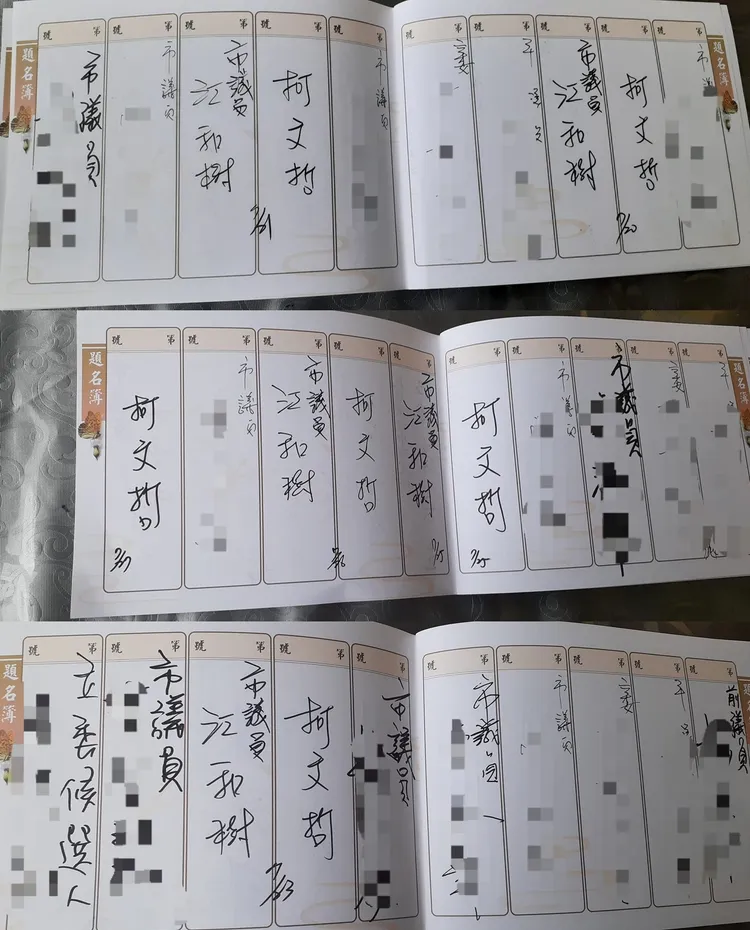 題名簿
第 號
市議
第 號
柯文哲
7/20
第 號
市議員
江和樹
第 號
第 號
第 號
市議員
第 號
柯文哲
7/21
第 號
市議員
江和樹
第 號
市議員
第 號
市議員
題名簿
題名簿
第 號
第 號
立委
第 號
市議員
第 號
市議員
第 號
柯文哲
7/25
第 號
市議員
江和樹
7/25
第 號
柯文哲
第 號
市議員
江和樹
第 號
市議員
第 號
柯文哲
7/27
題名簿
前議員
第 號
第 號
立委
第 號
市議員
第 號
市議員
第 號
市議員
第 號
柯文哲
7/23
第 號
市議員
江和樹
第 號
市議員
第 號
立委候選人
題名簿